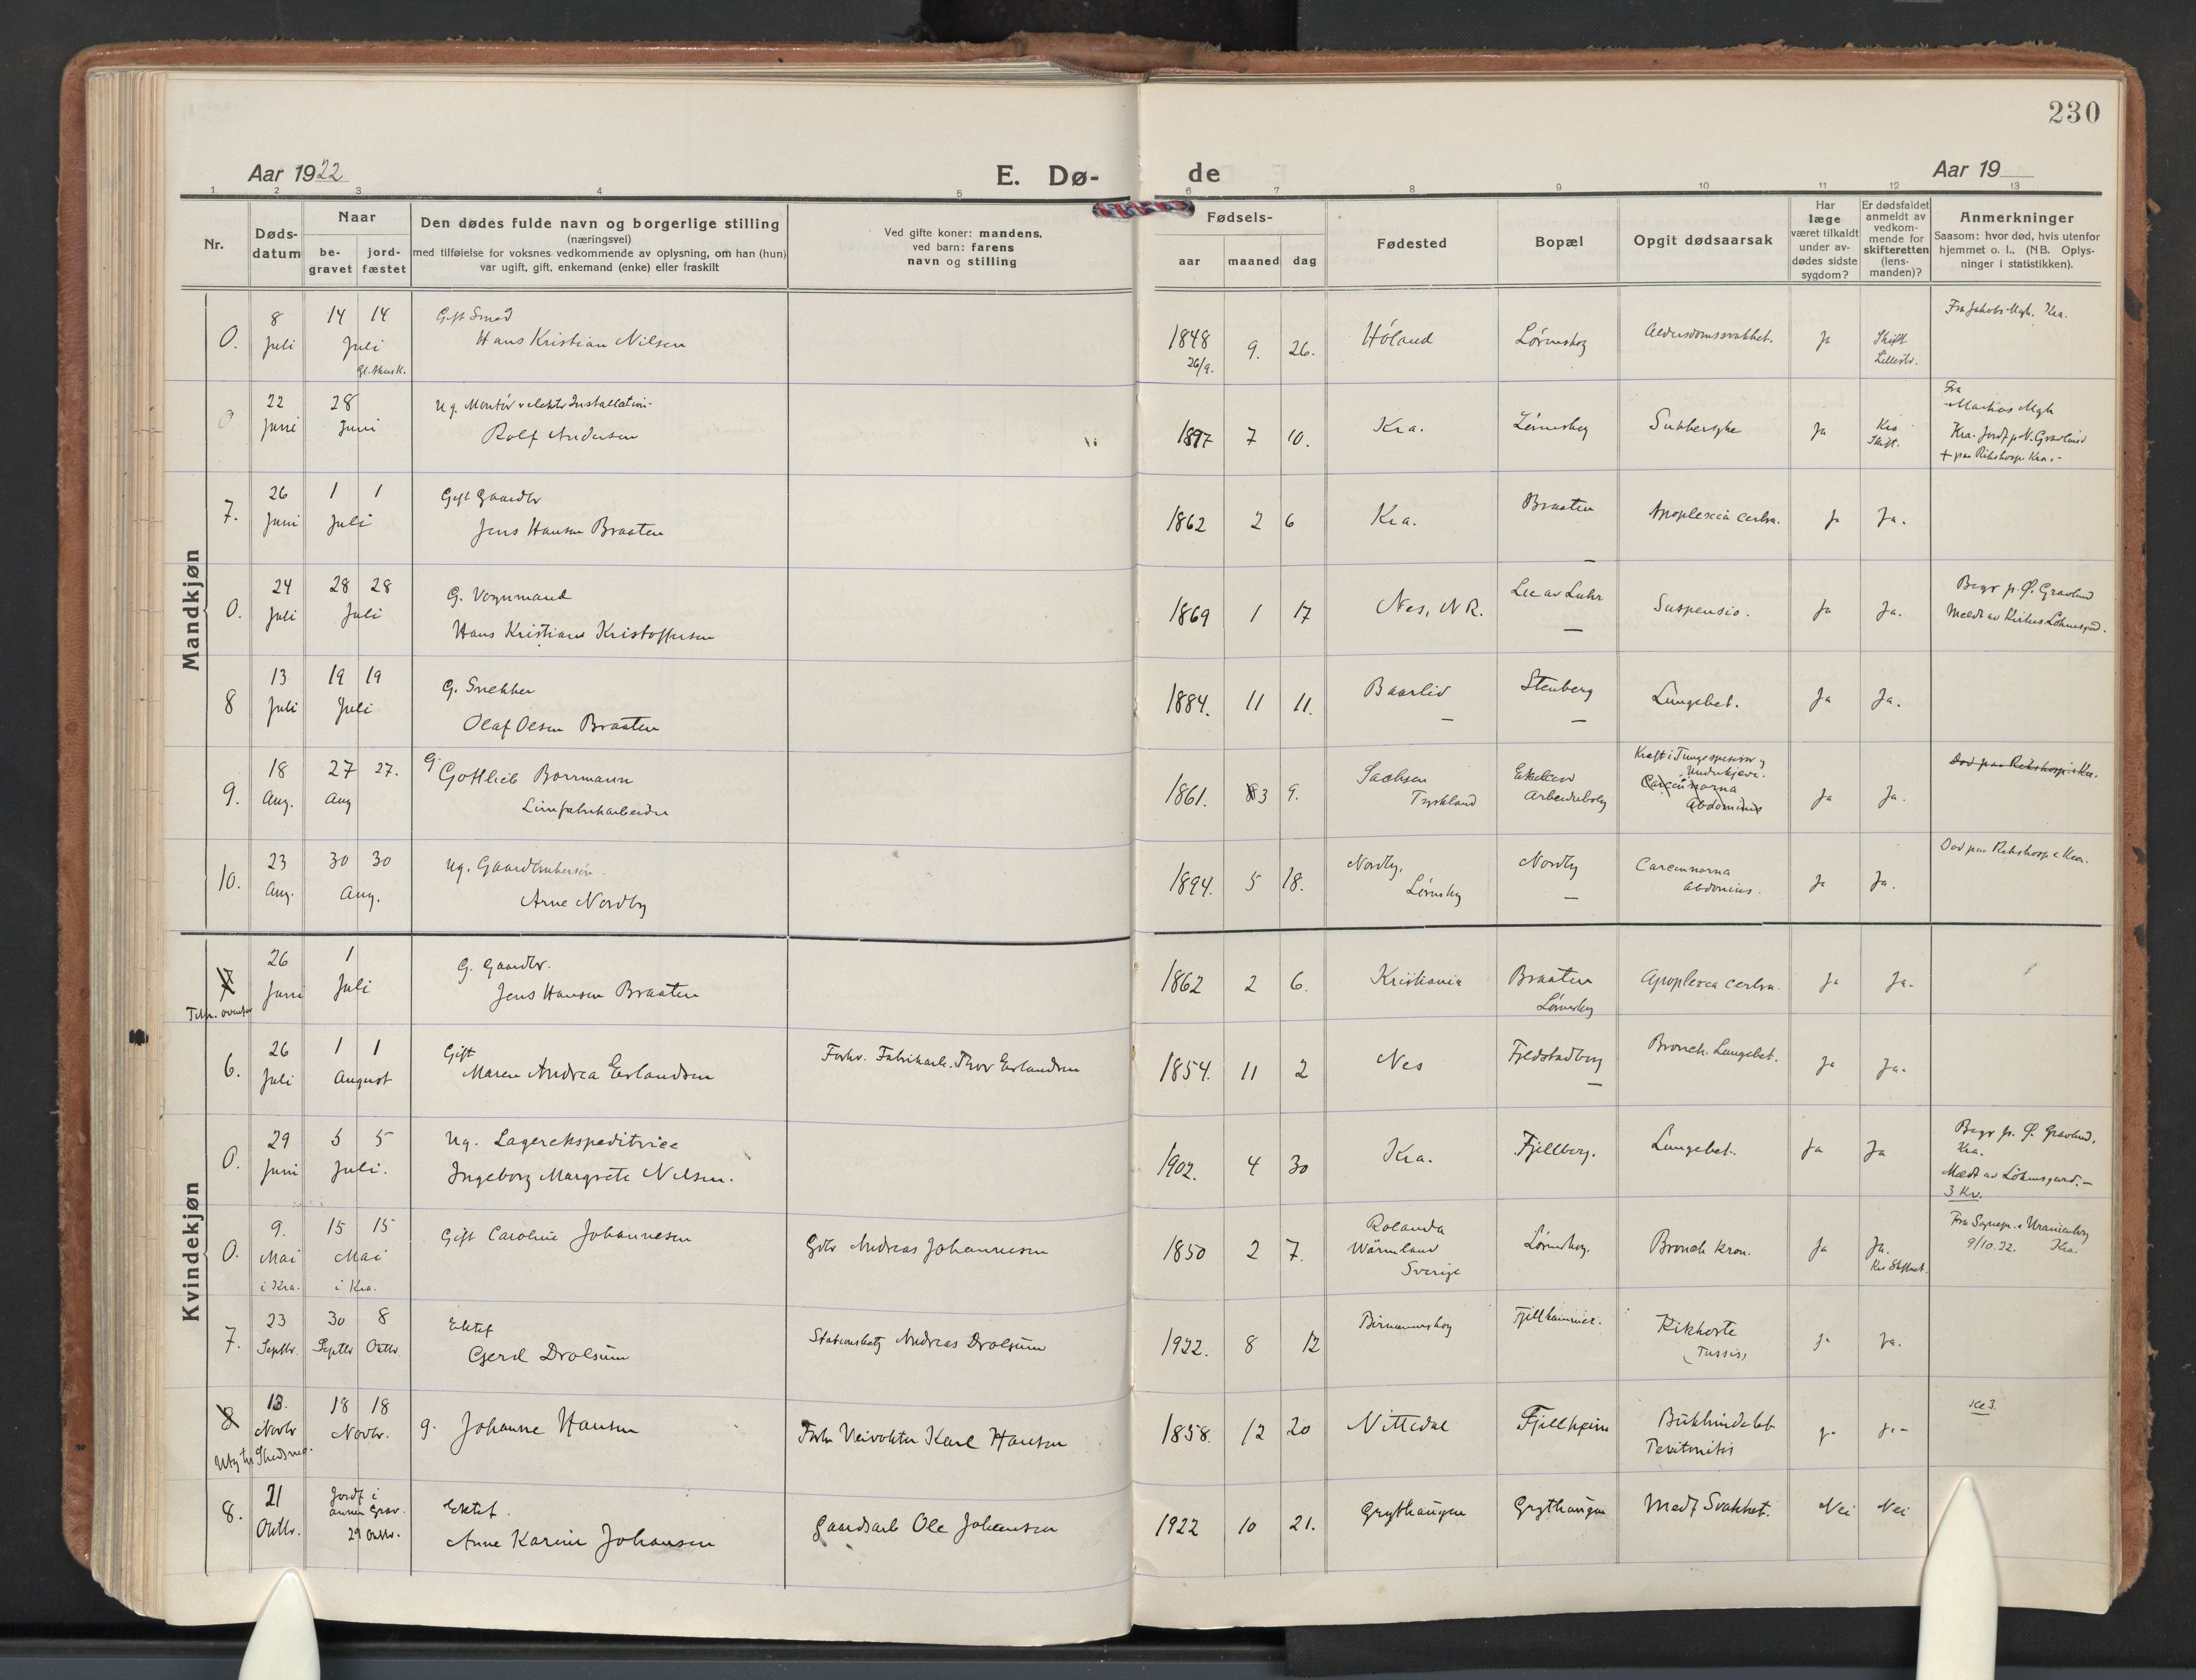 230
Aar 1922
E. Dø-
de
Aar 19
1 2 3 4 5 6 7 8 9 10 11 12 13
Nr.
Døds-
datum
Naar
be-
gravet
jord-
fæstet
Den dødes fulde navn og borgerlige stilling
(næringsvei)
med tilføielse for voksnes vedkommende av oplysning, om han (hun)
var ugift, gift, enkemand (enke) eller fraskilt
Ved gifte koner: mandens,
ved barn: farens
navn og stilling
Fødsels-
aar
maaned
dag
Fødested
Bopæl
Opgit dødsaarsak
Har
læge
været tilkaldt
under av-
dødes sidste
sygdom?
Er dødsfaldet
anmeldt av
vedkom-
mende for
skifteretten
(lens-
manden)?
Anmerkninger
Saasom: hvor død, hvis utenfor
hjemmet o. l., (NB. Oplys-
ninger i statistikken).
Mandkjøn
0. 8 Juli 14 14 Juli
Gift Smed
Hans Kristian Nilsen
1848 26/9. 9. 26. Høland Lørenskog Alderdomssvakhet. Ja Skift. Lillestr.
Fra Jakobs Mgh. Kra.
0 22 Juni 28 Juni
Ug. Montør v elektr Installation
Rolf Andersen
1897 7 10. Kra. Lørenskog Sukkersyke Ja Kra Skift.
Fra
Markus Mgh
Kra. Jordf p V. Gravlund
+ paa Rikshosp. Kra.-
7. 26 Juni 1 1 Juli
Gift Gaardbr
Jens Hansen Braaten
1862 2 6 Kra. Braaten Apoplexia cerebra. Ja Ja.
0. 24 Juli 28 28 Juli
G. Vognmand
Hans Kristian Kristoffersen
1869 1 17 Nes, N R. Lee av Luhr Suspensio. Ja Ja.
Begr p. Ø. Gravlund
8 13 Juli 19 19 Juli
G. Snekker
Olaf Olsen Braaten
1884. 11 11. Baarlid Stenberg Lungebet. Ja Ja.
9. 18 Aug. 27 27. Aug
G
Gottlieb Borrmann
Limfabrikarbeider
1861. 3 9. Sachsen Tyskland Ekelund Arbeiderbolig
Kræft i Tunge spiserør og
Underkjæve.
Carcinorna
Abdominis
Ja Ja.
Død paa Rikshosp. i Kra.
10. 23 Aug. 30 30 Aug.
Ug. Gaardbrukersøn.
Arne Nordby
1894. 5 18. Nordby, Lørenskog Nordby Carcinorna abdominis. Ja Ja.
Død paa Rikshosp i Kra.
Kvindekjøn
7 26 Juni 1 Juli
G. Gaardbr.
Jens Hansen Braaten
1862 2 6. Kristiania Braaten Lørenskog Apoplexia cerebra. Ja Ja.
6. 26 Juli 1 1 August
Gift
Maren Andrea Erlandsen
Forhv. Fabrikarb. Thor Erlandsen
1854. 11 2 Nes Fjeldstadberg Bronch. Lungebet. Ja Ja.
0. 29 Juni 5 5 Juli.
Ug. Lagerekspeditrice
Ingeborg Margrete Nilsen.
1902. 4 30 Kra. Fjellberg. Lungebet. Ja Ja
Begr p. Ø. Gravlund,
Kra.
3 Kv.
0. 9. Mai i Kra. 15 15 Mai i Kra.
Gift Caroline Johannesen
Gbr Andreas Johannesen
1850 2 7. Rolanda Wärmland Sverige Lørenskog. Bronch kron. Ja Ja.
Fra Sognepr. i Uranienborg
9/10.22. Kra.
7. 23 Septbr. 30 Septbr 8 Oktbr.
Ektef
Gjerd Drolsum
Stationsbetj Andreas Drolsum
1922. 8 12 Fjellhammer. Kikhoste (Tussis) Ja Ja.
8 13. Novbr 18 18 Novbr.
g. Johanne Hansen
Forhv Veivokter Karl Hansen
1858. 12 20 Nittedal Fjellheim Bukhindebet Peritonitis Ja Ja-
8. 21 Oktbr.
Jordf i
annen Grav.
29 Oktbr.
Ektef.
Anne Karine Johansen
Gaardsarb Ole Johansen
1922 10 21. Grythaugen Grythaugen Medf Svakhet. Nei Nei